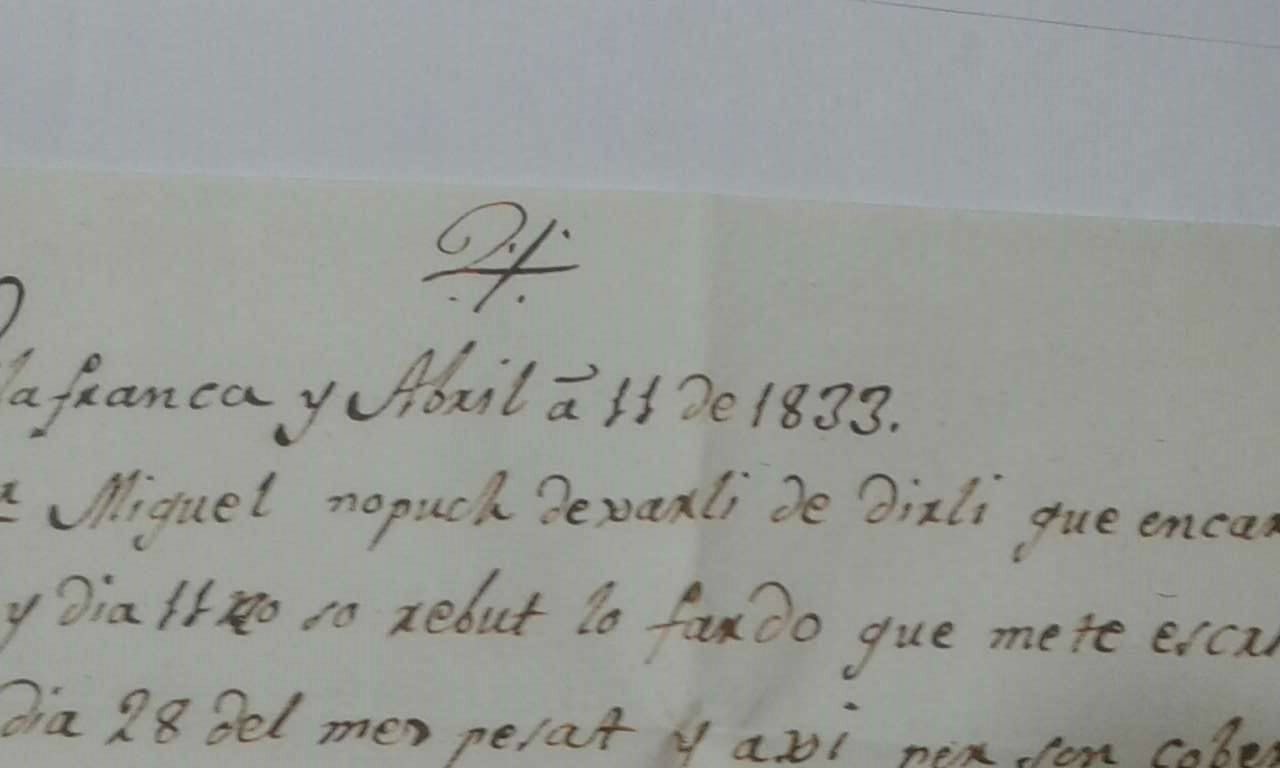 lafranca y Abril â 11 de 1833.
r Miguel nopuch dexarli de dirli que encar
y dia 11 no so rebut lo fardo que mete escri
dia 28 del mes pesat y axi per son cober